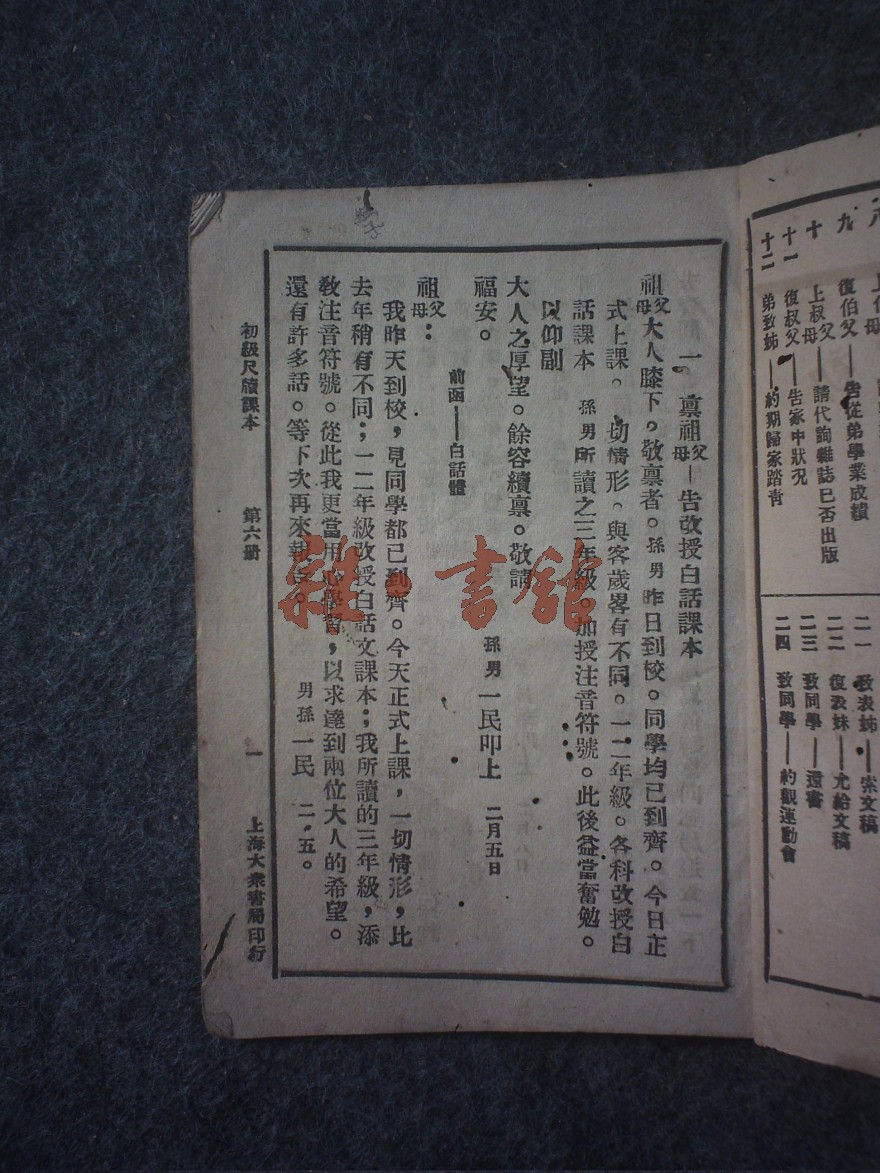 十一 復叔父——告家中狀况
十二 弟致姊——約期歸家踏青
十 上叔父母——請代詢雜誌已否出版
九 復伯父——告從弟學業成績
二一 致表姊——索文稿
二二 復表妹——允給文稿
二三 致同學——還書
二四 致同學——約觀運動會
一 稟祖父母—告改授白話課本
祖父母大人膝下。敬稟者。孫男昨日到校。同學均已到齊。今日正
式上課。一切情形。與客歲畧有不同。一二年級。各科改授白
話課本 孫男所讀之三年級。加授注音符號。此後益當奮勉。
以仰副
大人之厚望。餘容續稟。敬請
福安。 孫男 一民叩上 二月五日
前函——白話體
祖父母：
我昨天到校，見同學都已到齊。今天正式上課，一切情形，比
去年稍有不同；一二年級改授白話文課本；我所讀的三年級，添
教注音符號。從此我更當用心學習，以求達到兩位大人的希望。
還有許多話。等下次再來報告。 男孫 一民 二．五。
初級尺牘課本 第六册 一 上海大衆書局印行
雜·書館